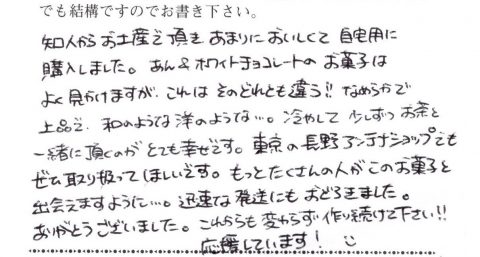 でも結構ですのでお書き下さい。
知人からお土産で頂き あまりにおいしくて 自宅用に
購入しました。あん&ホワイトチョコレートの お菓子は
よく見かけますが、これは そのどれとも違う!! なめらかで
上品で、和のような洋のような…。冷やして 少しずつ お茶と
一緒に頂くのが とても幸せです。東京の長野アンテナショップでも
ぜひ取り扱ってほしいです。もっとたくさんの人がこのお菓子と
出会えますように…。迅速な発送にも おどろきました。
ありがとうございました。これからも変わらず 作り続けて下さい!!
応援しています!